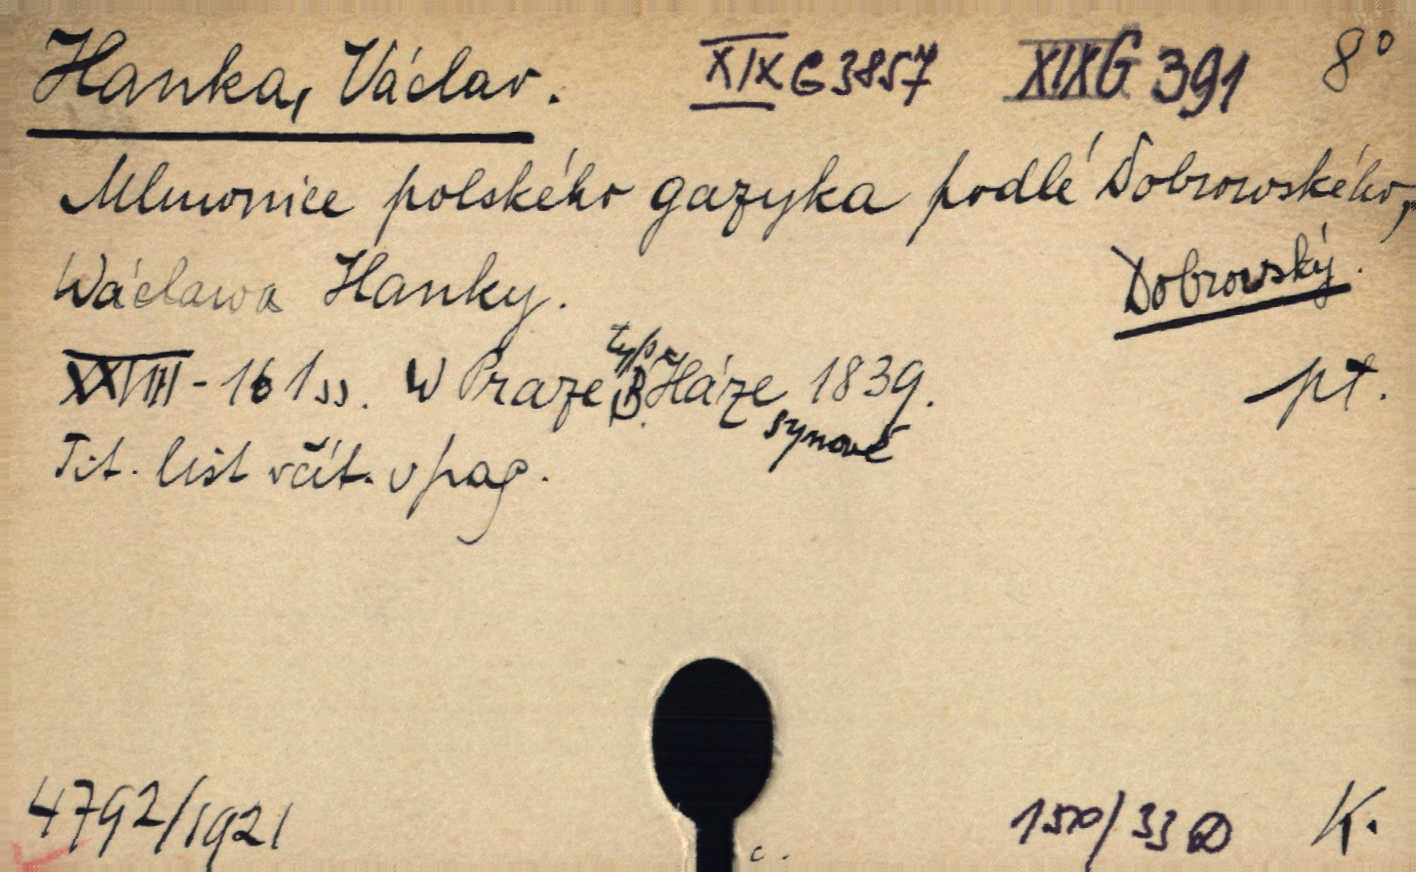 Hanka, Václav. XIX G 3857 XIX G 391 8°
Mluwnice polského gazyka podlé Dobrowského,
Wáclawa Hanky. Dobrowský.
XXVIII - 161 ss. W Praze typ. B. Háze synové 1839. pt.
Tit. list včít. v pag.
4792/1921
c. 150/33 D K.